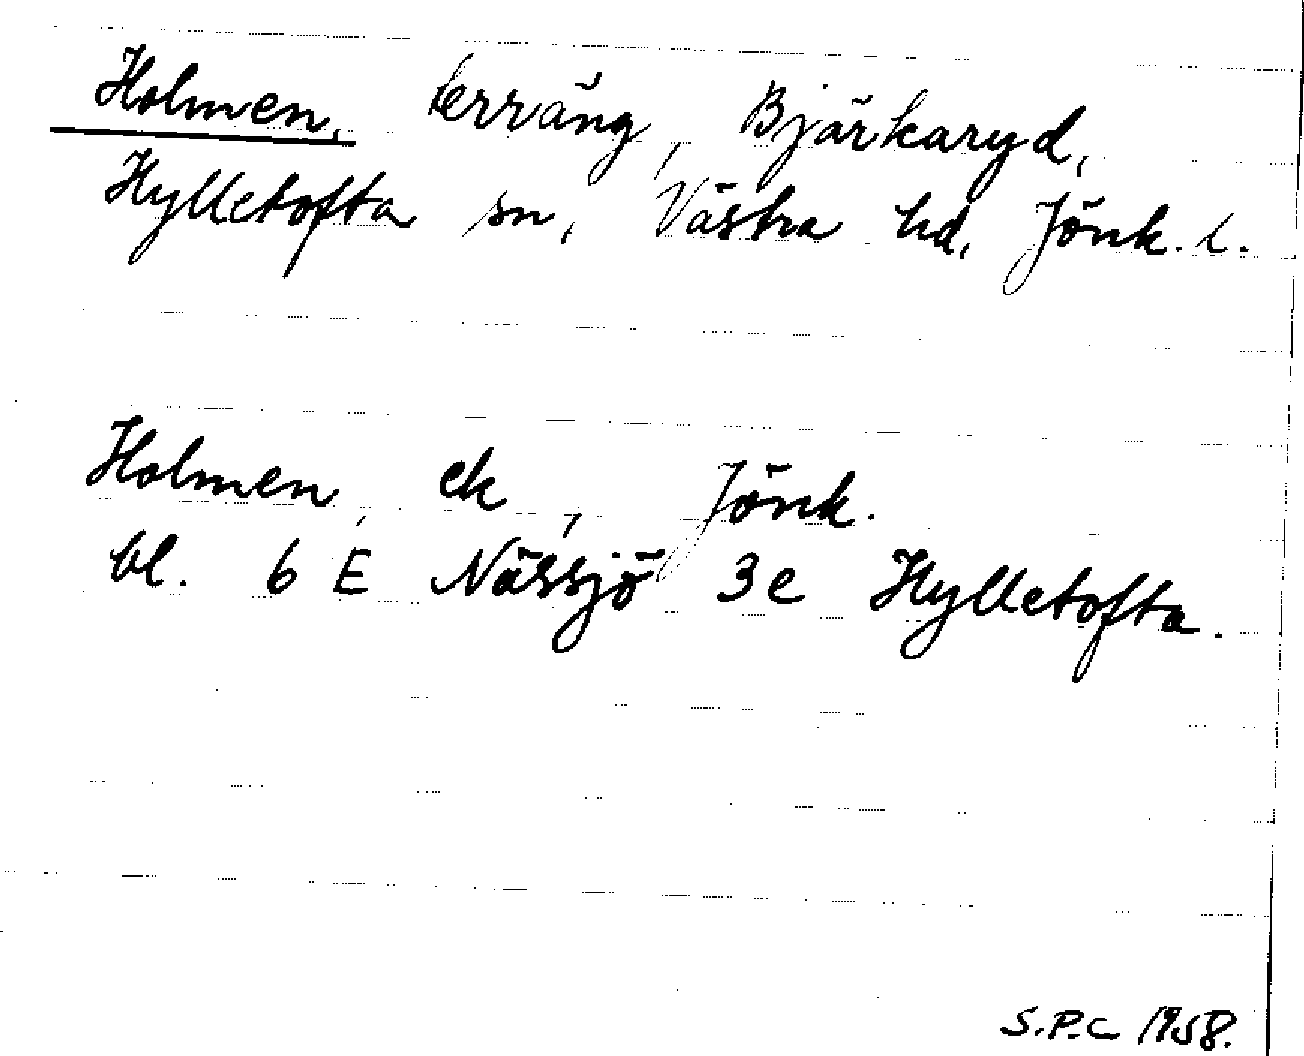 Holmen, terräng, Bjärkaryd,
Hylletofta sn, Västra hd, Jönk. l.
Holmen, ek, Jönk.
bl. 6 E Nässjö 3e Hylletofta.
S.P.C 1958.